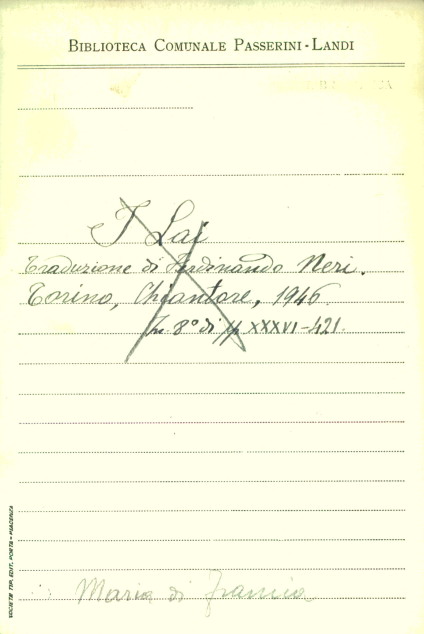 BIBLIOTECA COMUNALE PASSERINI-LANDI
I Lai
Traduzione di Ferdinando Neri.
Torino, Chiantore, 1946.
In 8° di pp XXXVI-421.
Maria di Francia
SOCIETÀ TIP. EDIT. PORTA - PIACENZA